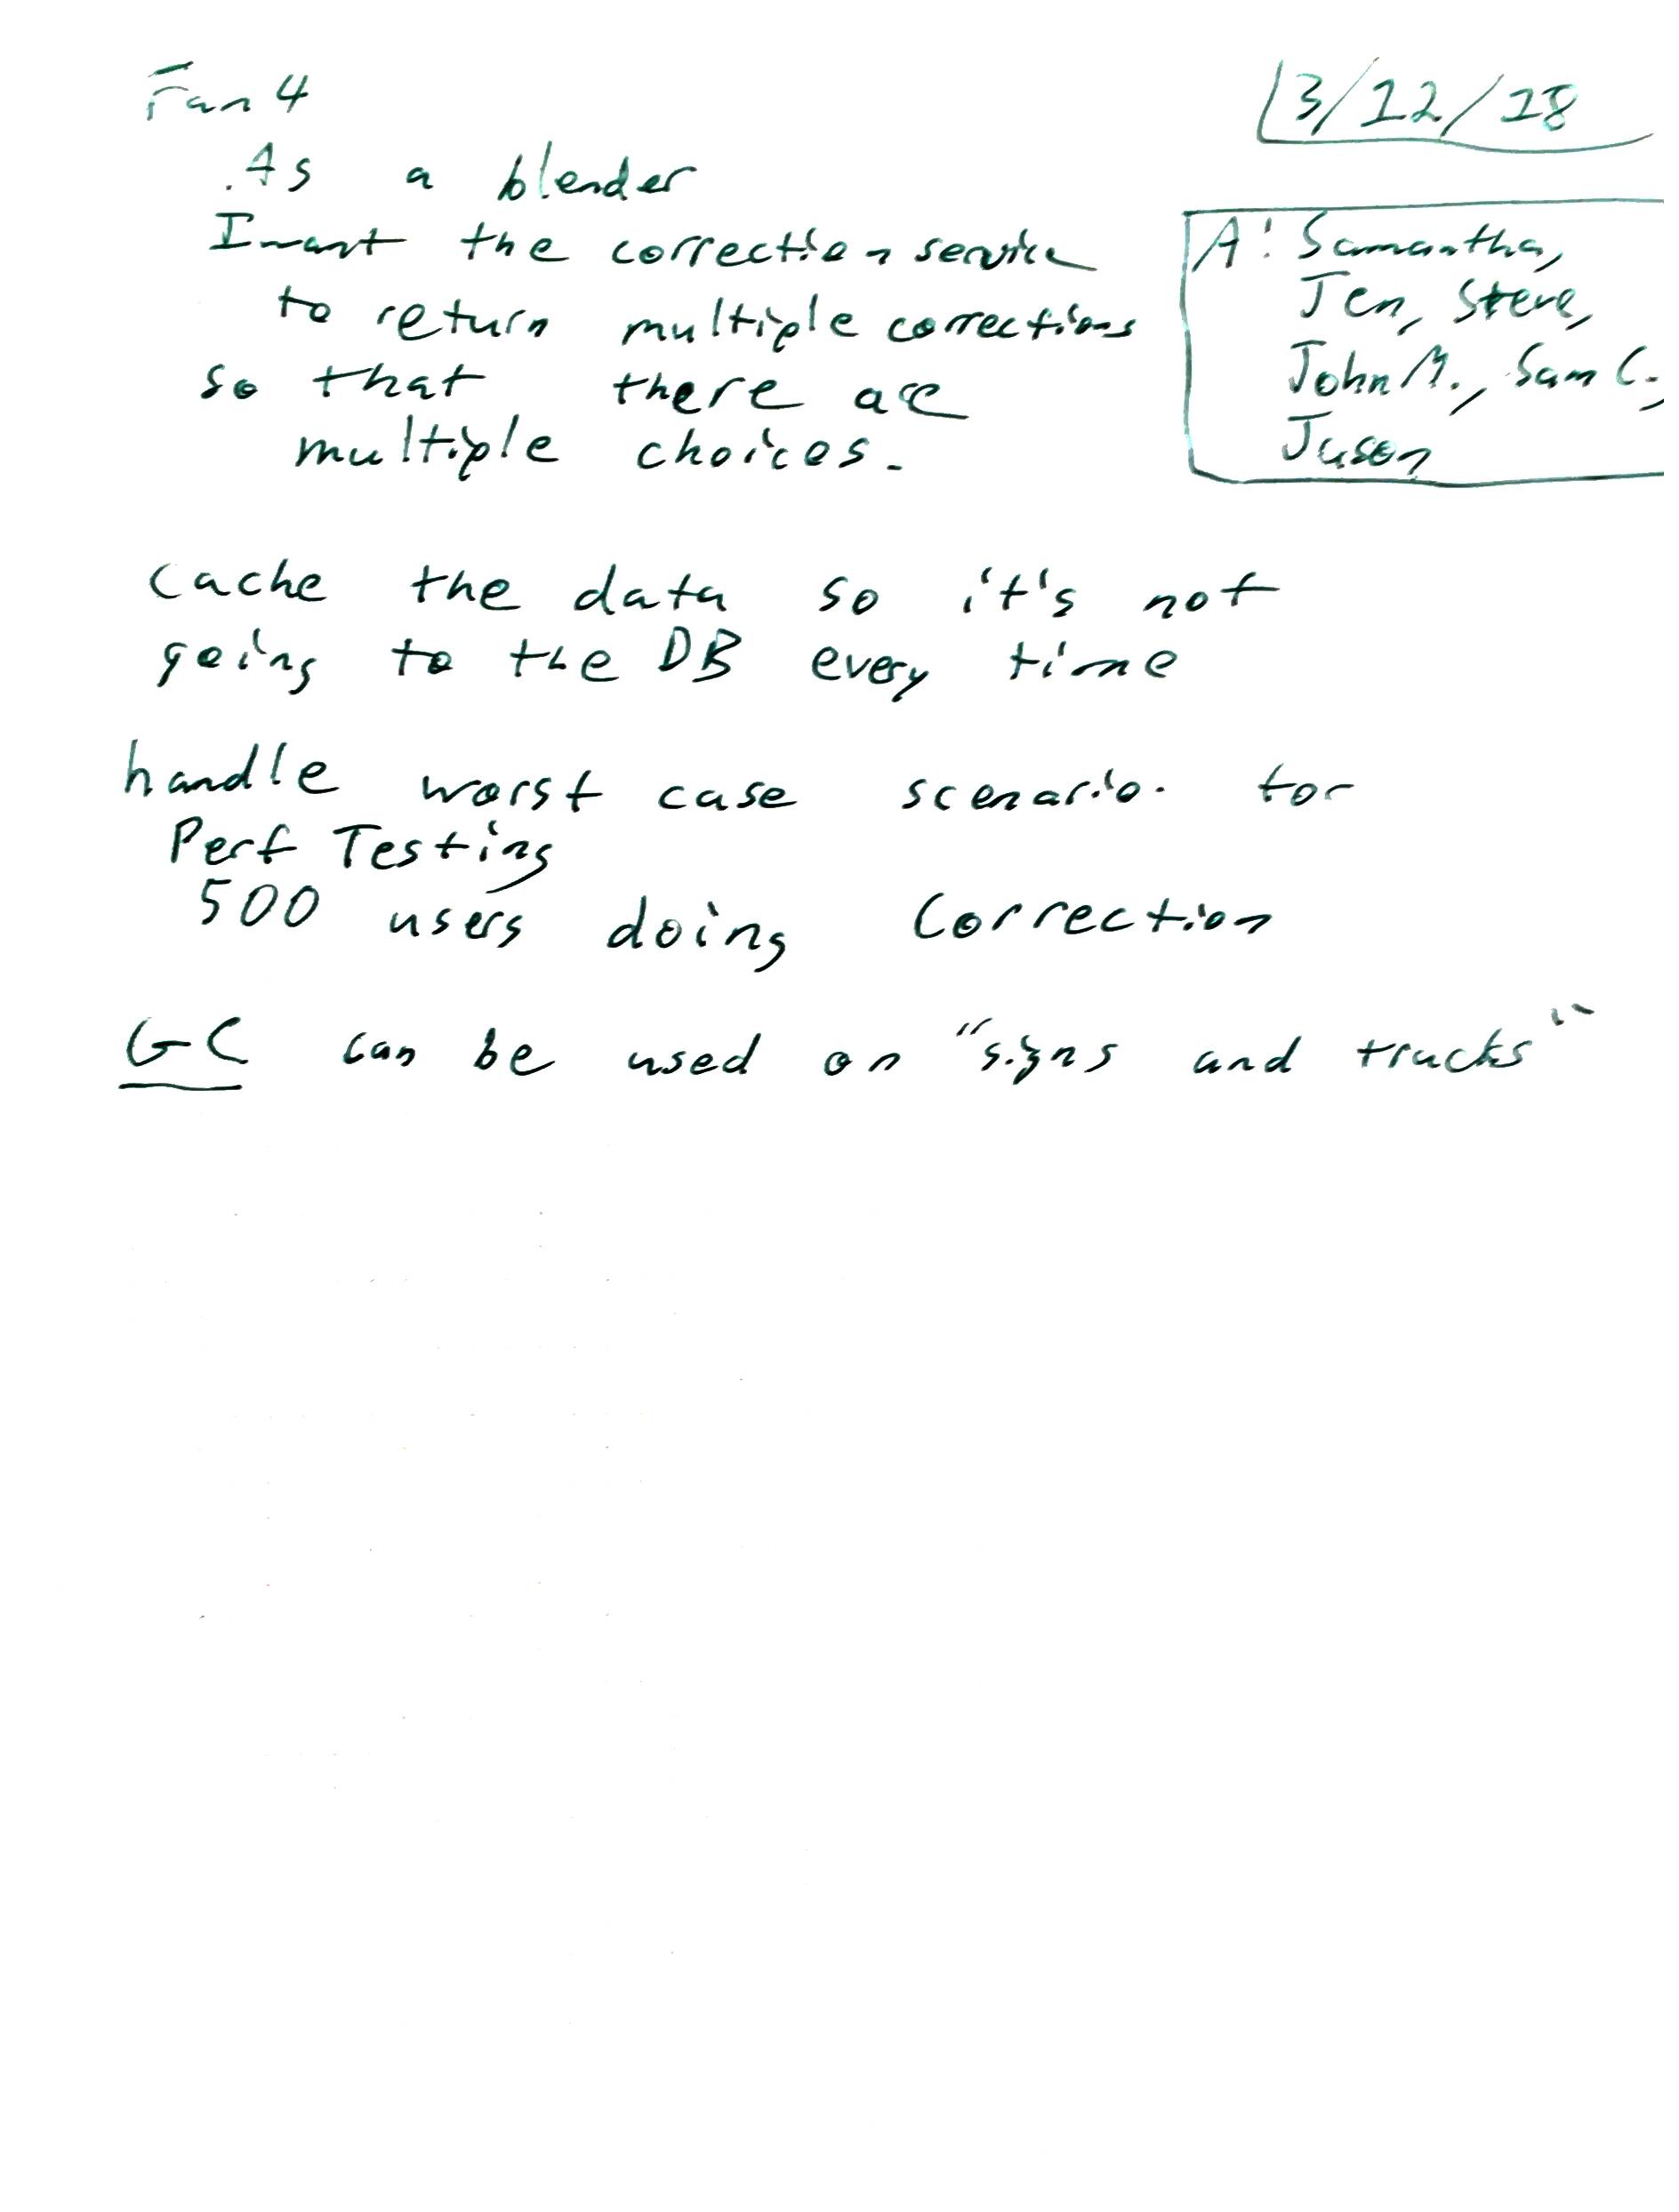 Fan 4
3/12/18
As a blender
I want the correction service
to return multiple corrections
so that there are
multiple choices.
A: Samantha,
Jen, Steve,
John M., Sam C.,
Jason
cache the data so it's not
going to the DB every time
handle worst case scenario for
Perf Testing
500 users doing Correction
GC can be used on "signs and trucks"